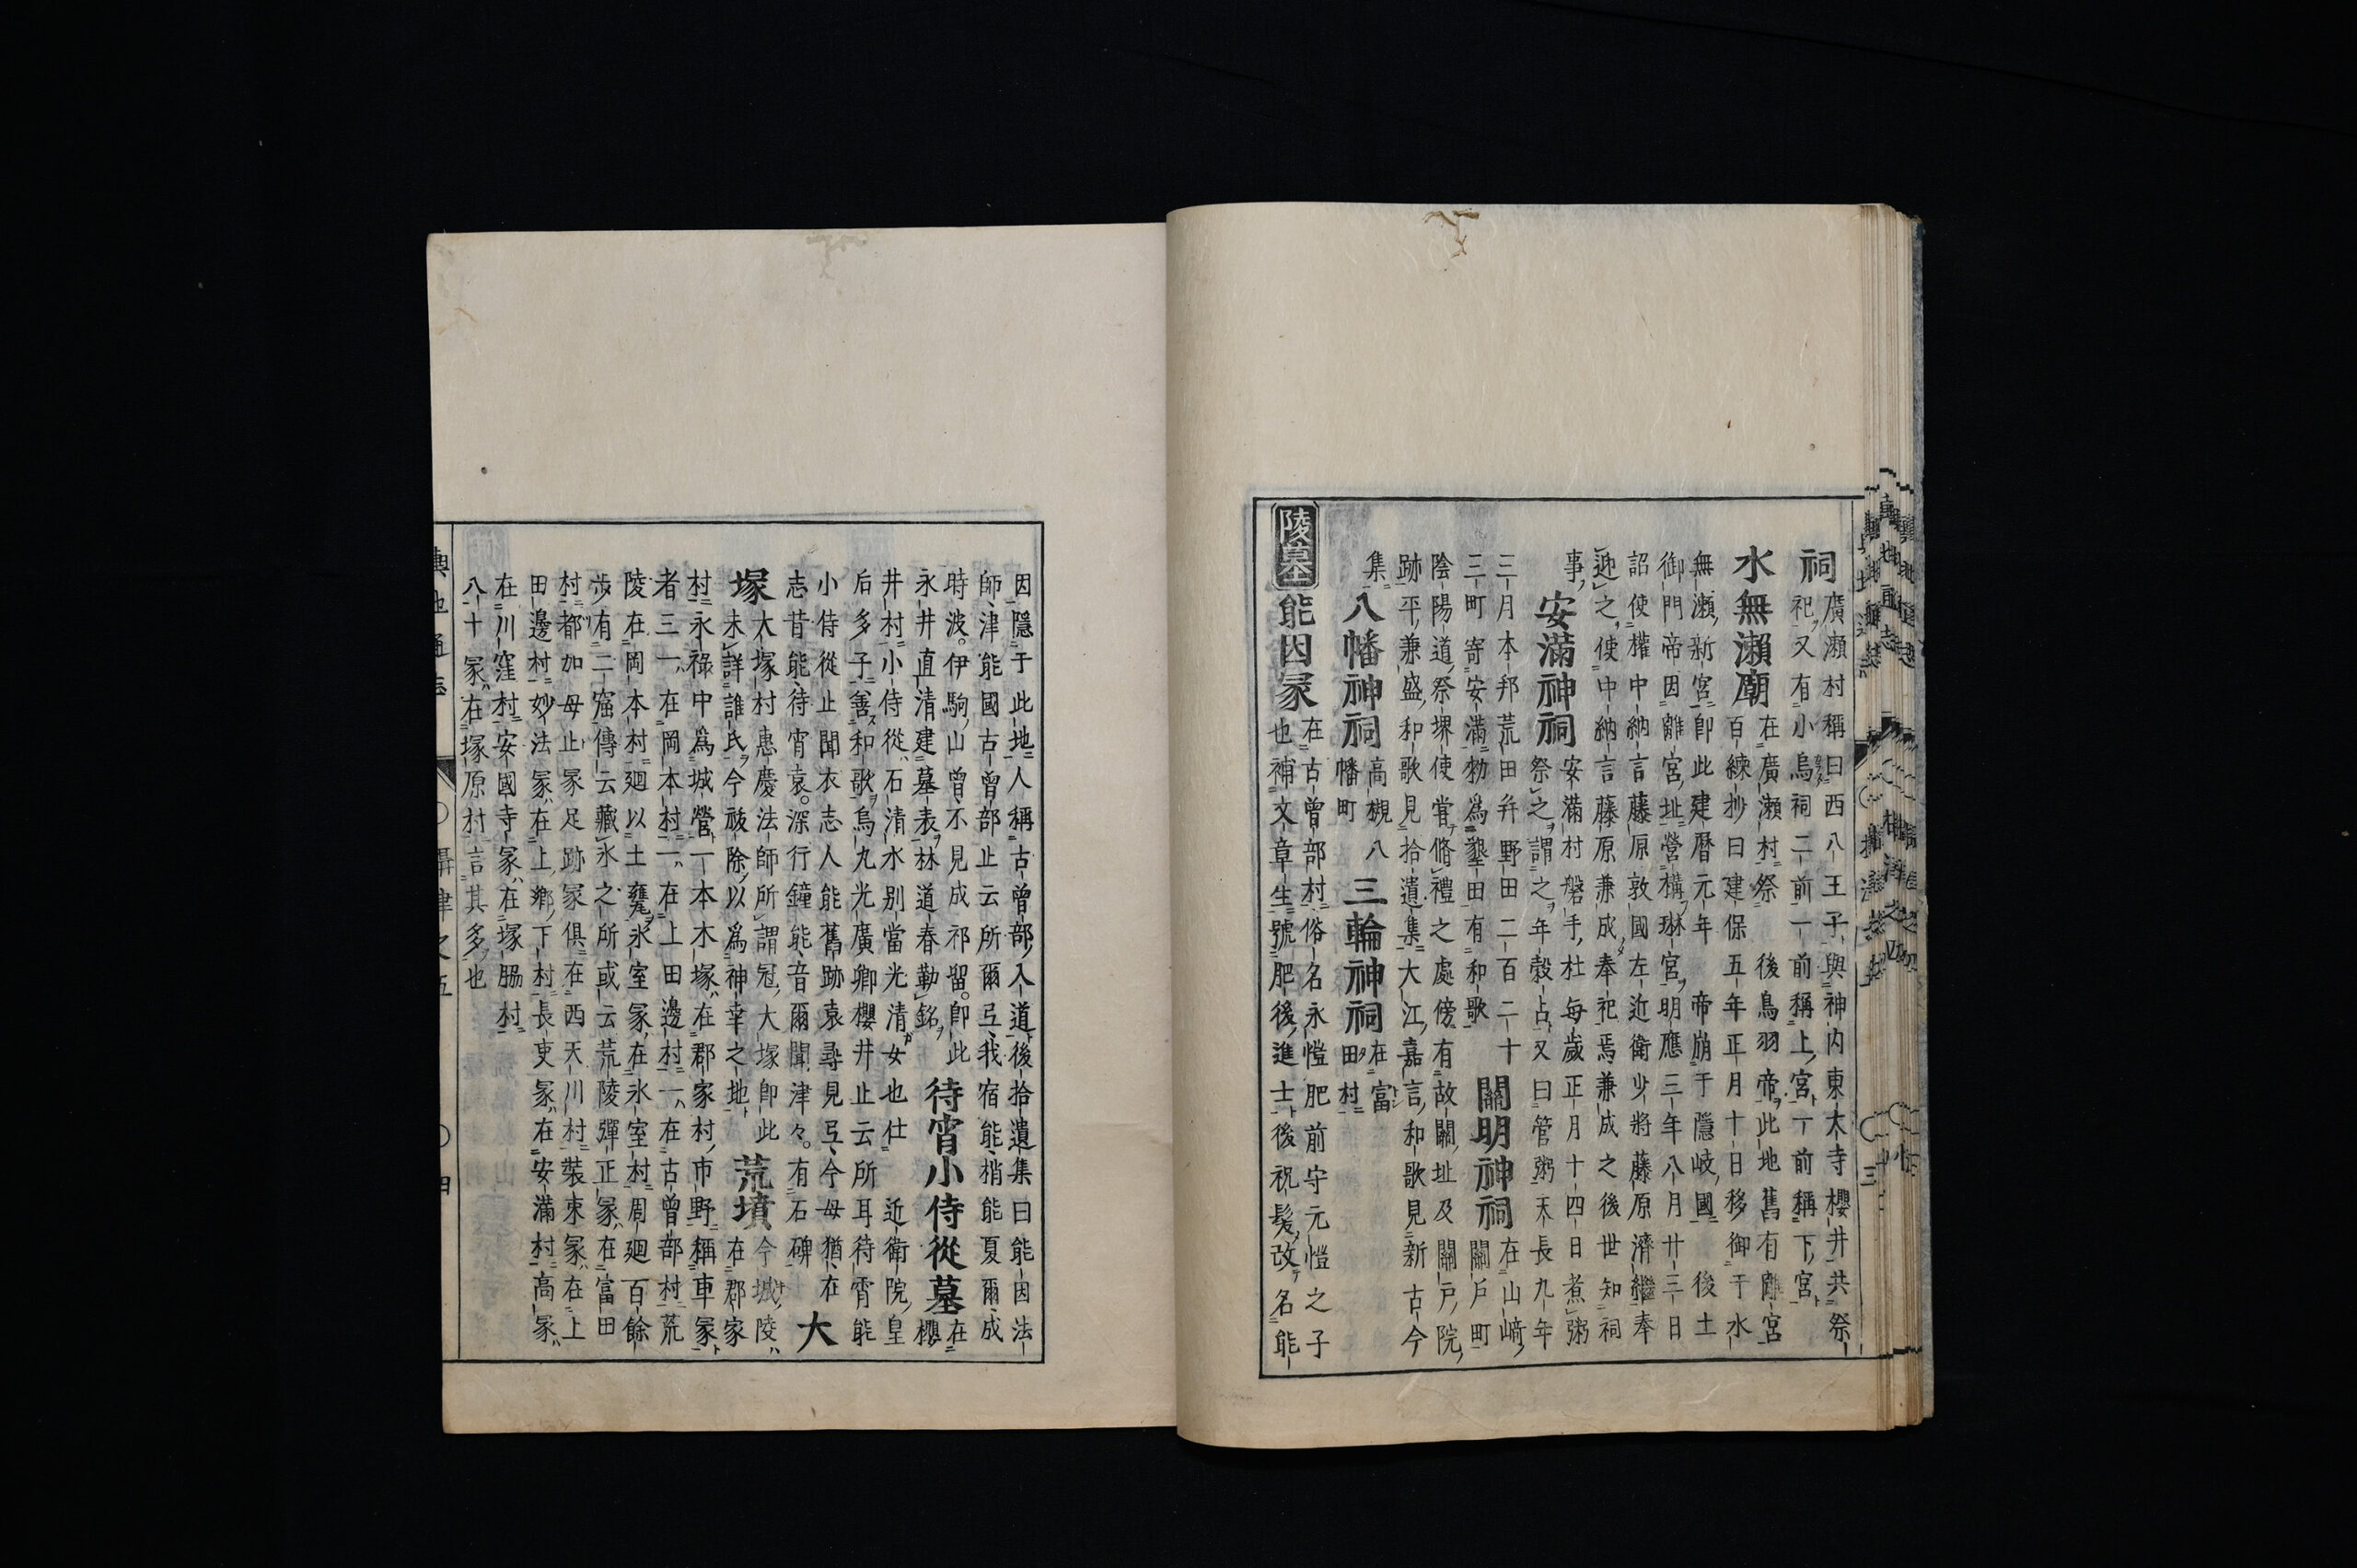 祠廣瀬村稱曰西八王子與神内東大寺櫻井共祭
祀又有小烏祠二前一前稱上宮一前稱下宮
水無瀬廟在廣瀬村祭後鳥羽帝此地舊有離宮
百練抄曰建保五年正月十日移御于水
無瀬新宮卽此建暦元年帝崩于隠岐國後土
御門帝因離宮址營構琳宮明應三年八月廿三日
詔使權中納言藤原敦國左近衛少將藤原濟繼奉
迎之使中納言藤原兼成奉祀焉兼成之後世知祠
事安滿神祠安滿村磐手杜毎歳正月十四日煮粥
祭之謂之年穀占又曰管粥天長九年
三月本邦荒田幷野田二百二十
三町寄安滿勅為墾田有和歌
關明神祠在山﨑關戸町
陰陽道祭堺使嘗脩禮之處傍有故關址及關戸院
跡平兼盛和歌見拾遺集大江嘉言和歌見新古今
集八幡神祠高槻八幡町三輪神祠在富田村
陵墓
能因冢在古曾部村俗名永愷肥前守元愷之子
也補文章生號肥後進士後祝髪改名能
因隱于此地人稱古曾部入道後拾遺集曰能因法
師津能國古曾部止云所爾弖我宿能梢能夏爾成
時波伊駒山曾不見成祁留卽此待宵小侍從墓在櫻
永井直清建墓表林道春勒銘
井村小侍從石清水別當光清女也仕近衛院皇
后多子善和歌烏丸光廣卿櫻井止云所耳待霄能
小侍從止聞衣志人能舊跡哀尋見弖今母猶在
志昔能待宵哀深行鐘能音爾聞津々有石碑大
塚大塚村惠慶法師所謂冠大塚卽此荒墳今城陵
未詳誰氏今祓除以為神幸之地在郡家
村永禄中為城營一本木塚在郡家村市野稱車冢
者三一在岡本村一在上田邊村一在古曾部村荒
陵在岡本村廻以土甕氷室冢在氷室村周廻百餘
歩有二窟傳云藏氷之所或云荒陵彈正冢在富田
村都加母止冢足跡冢倶在西天川村裝束冢在上
田邊村妙法冢在上鄕下村長吏冢在安滿村高冢
在川窪村安國寺冢在塚脇村
八十冢在塚原村言其多也
輿地通志
攝津之五